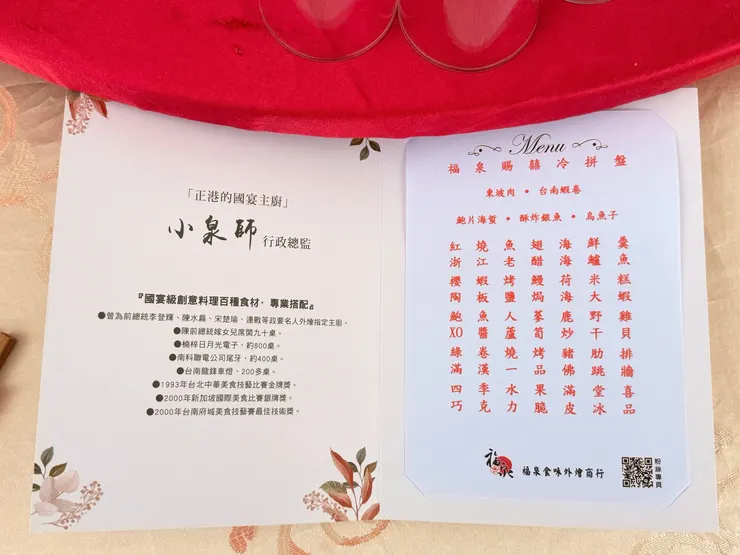 「正港的國宴主廚」
小泉師 行政總監
『國宴級創意料理百種食材，專業搭配』
●曾為前總統李登輝、陳水扁、宋楚瑜、連戰等政要名人外燴指定主廚。
●陳前總統嫁女兒席開九十桌。
●楠梓日月光電子，約800桌。
●南科聯電公司尾牙，約400桌。
●台南龍鋒車燈，200多桌。
●1993年台北中華美食技藝比賽金牌獎。
●2000年新加坡國際美食比賽銀牌獎。
●2000年台南府城美食技藝賽最佳技術獎。
Menu
福泉賜囍冷拼盤
東坡肉 • 台南蝦卷
鮑片海蜇 • 酥炸銀魚 • 烏魚子
紅燒魚翅海鮮羹
浙江老醋海鱸魚
櫻蝦烤鰻荷米糕
陶板鹽焗海大蝦
鮑魚人蔘鹿野雞
XO醬蘆筍炒干貝
綠卷燒烤豬肋排
滿漢一品佛跳牆
四季水果滿堂喜
巧克力脆皮冰品
福泉 福泉食味外燴商行
粉絲專頁